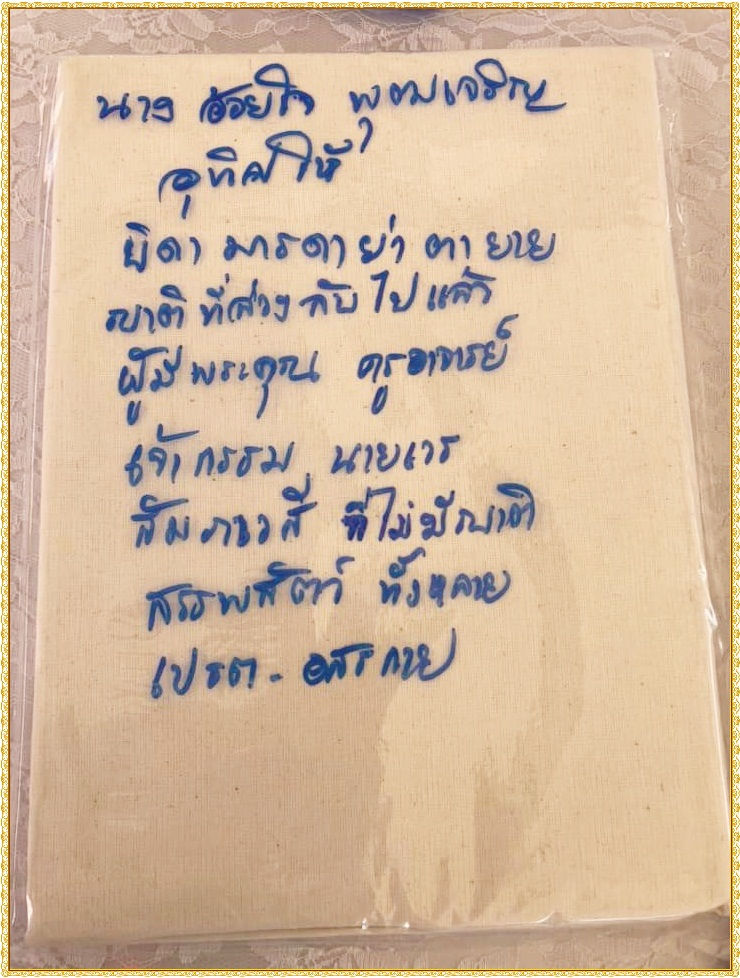 นาง อ้อยใจ พุฒเจริญ
อุทิศให้
บิดา มารดา ย่า ตา ยาย
ญาติ ที่ล่วง ลับ ไป แล้ว
ผู้มี พระคุณ ครูอาจารย์
เจ้ากรรม นายเวร
สัมภเวสี ที่ไม่มีญาติ
สรรพสัตว์ ทั้งหลาย
เปรต - อสุรกาย